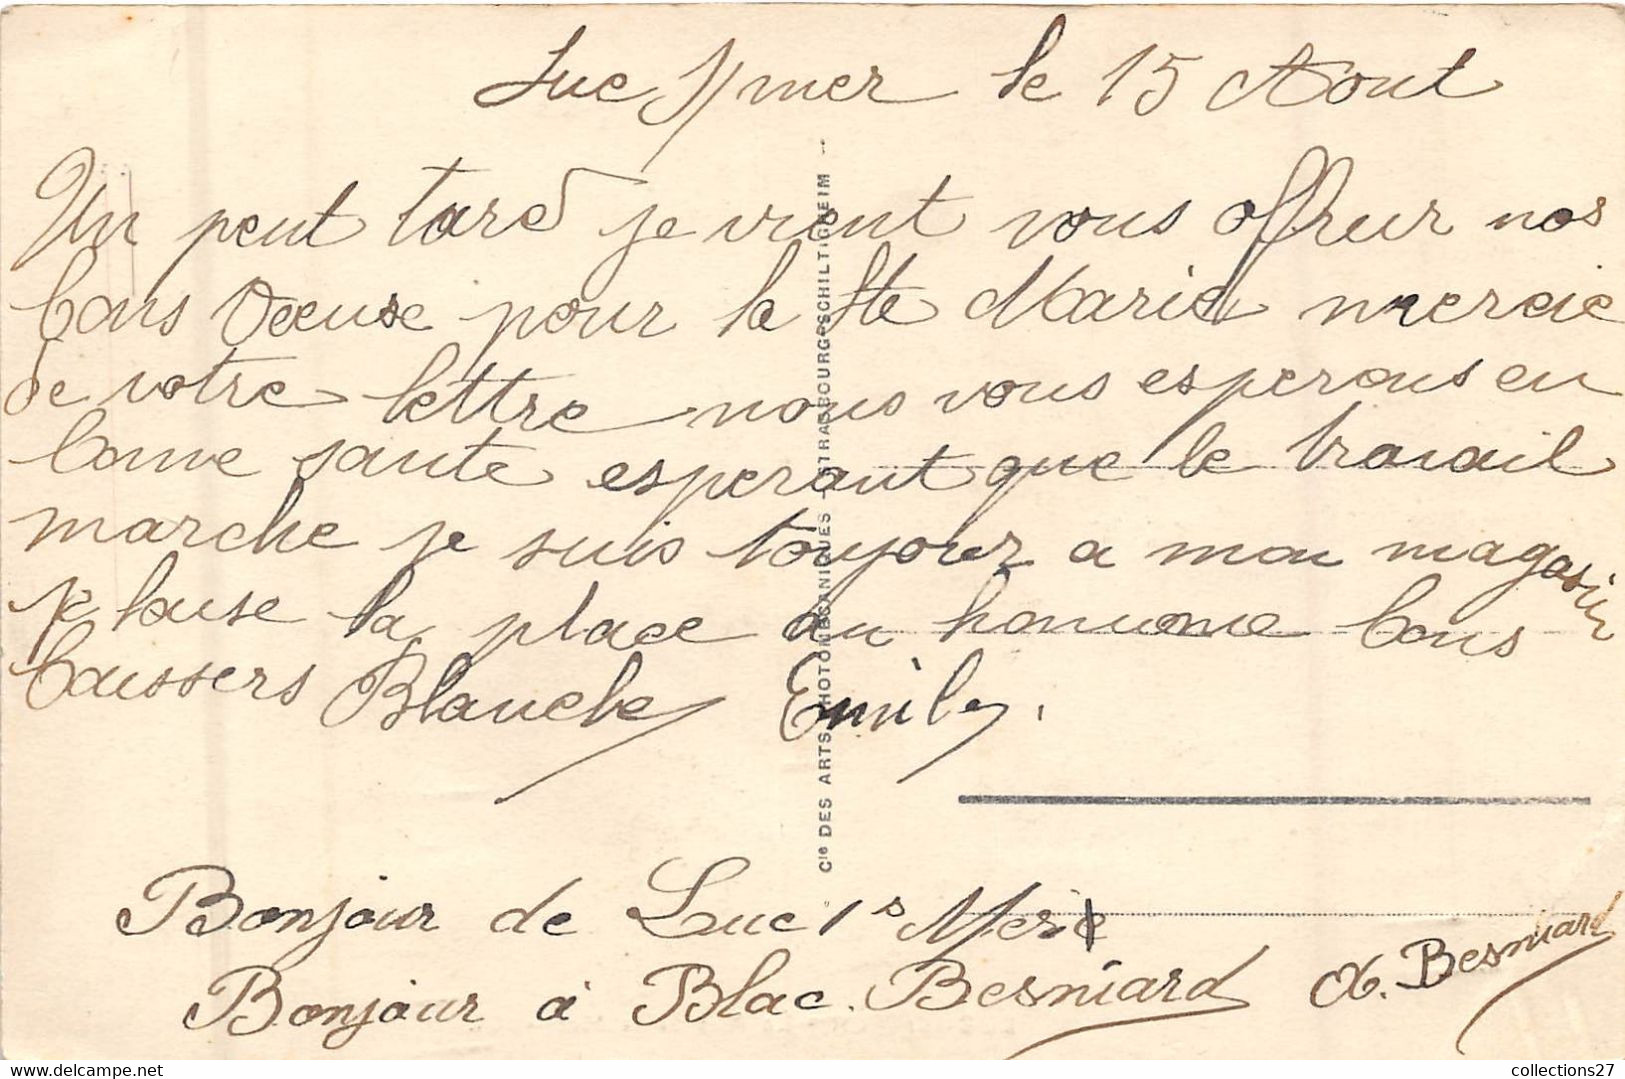 Luc s/mer le 15 Aout
Un peut tard je vient vous offrir nos
bons Voeuse pour la Ste Marie mercie
de votre lettre nous vous esperons en
bonne sante esperant que le travail
marche je suis toujour a mon magasin
je laise la place au homme bons
baissers Blanche Emile.
Cie DES ARTS PHOTOMÉCANIQUES - STRASBOURG-SCHILTIGHEIM -
Bonjour de Luc s Mer
Bonjour à Blac. Besniard
Besniard
collections27